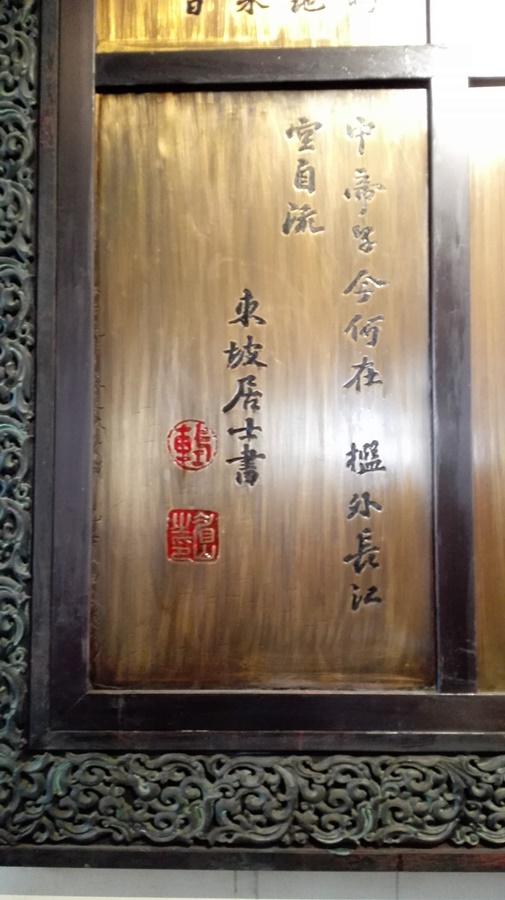 中帝子今何在 檻外長江
空自流
東坡居士書